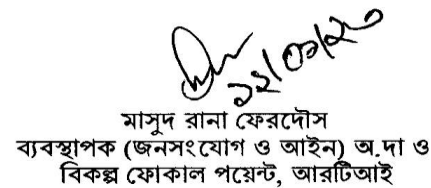 মাসুদ রানা ফেরদৌস
ব্যবস্থাপক (জনসংযোগ ও আইন) অ.দা ও
বিকল্প ফোকাল পয়েন্ট, আরটিআই